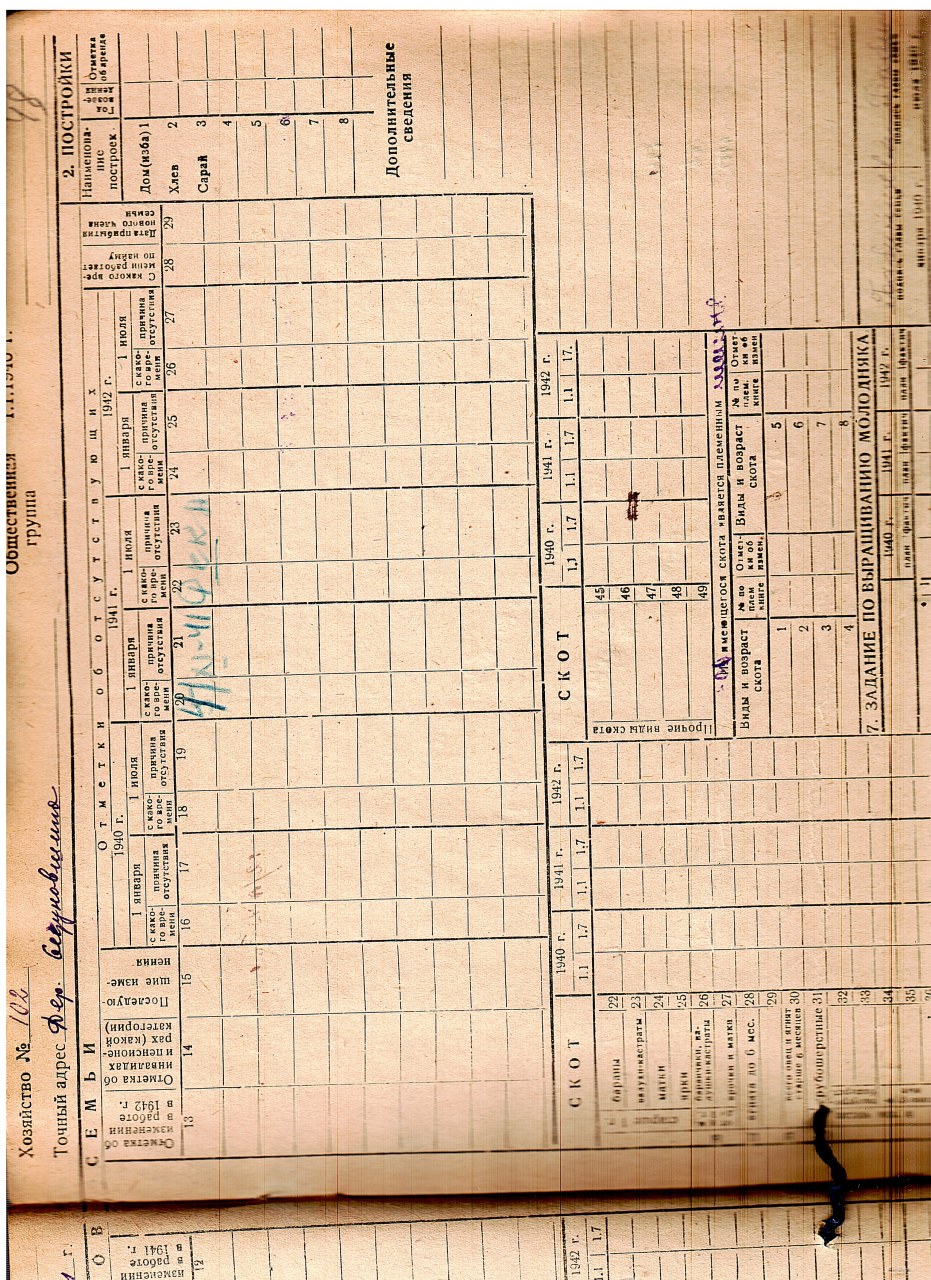 Хозяйство № 102
Точный адрес Дер.
Общественная
группа
1.1.1940 г.
48
С Е М Ь И
Отметки об отсутствующих
1940 г.
1941 г.
1942 г.
1 января
1 июля
1 января
1 июля
1 января
1 июля
Отметка об изменении в работе в 1942 г.
Отметка об инвалидах и пенсионерах (какой категории)
Последующие изменения
с какого времени
причина отсутствия
с какого времени
причина отсутствия
с какого времени
причина отсутствия
с какого времени
причина отсутствия
с какого времени
причина отсутствия
с какого времени
причина отсутствия
С какого времени работает по найму
Дата прибытия нового члена семьи
13 14 15 16 17 18 19 20 21 22 23 24 25 26 27 28 29
2. ПОСТРОЙКИ
Наименование построек
Год возведения
Отметка об аренде
Дом(изба) 1
Хлев 2
Сарай 3
4
5
6
7
8
Дополнительные
сведения
СКОТ
1940 г. 1941 г. 1942 г.
1.1 1.7 1.1 1.7 1.1 1.7
бараны 22
валухи-кастраты 23
матки 24
ярки 25
баранчики, валушки-кастраты 26
ярочки и матки 27
ягнята до 6 мес. 28
29
всего овец и ягнят старше 6 месяцев 30
грубошерстные 31
32
33
34
35
СКОТ
1940 г. 1941 г. 1942 г.
1.1 1.7 1.1 1.7 1.1 17.
Прочие виды скота
45
46
47
48
49
имеющегося скота является племенным
Виды и возраст скота
№ по плем книге
Отметки об измен.
Виды и возраст скота
№ по плем. книге
Отметки об измен
1 5
2 6
3 7
4 8
7. ЗАДАНИЕ ПО ВЫРАЩИВАНИЮ МОЛОДНЯКА
1940 г. 1941 г. 1942 г.
план фактич план фактич план фактич
подпись главы семьи
января 1940 г.
подпись главы семьи
июля 1940 г.
О В
изменении в работе в 1941 г.
12
1942 г.
1.1 1.7